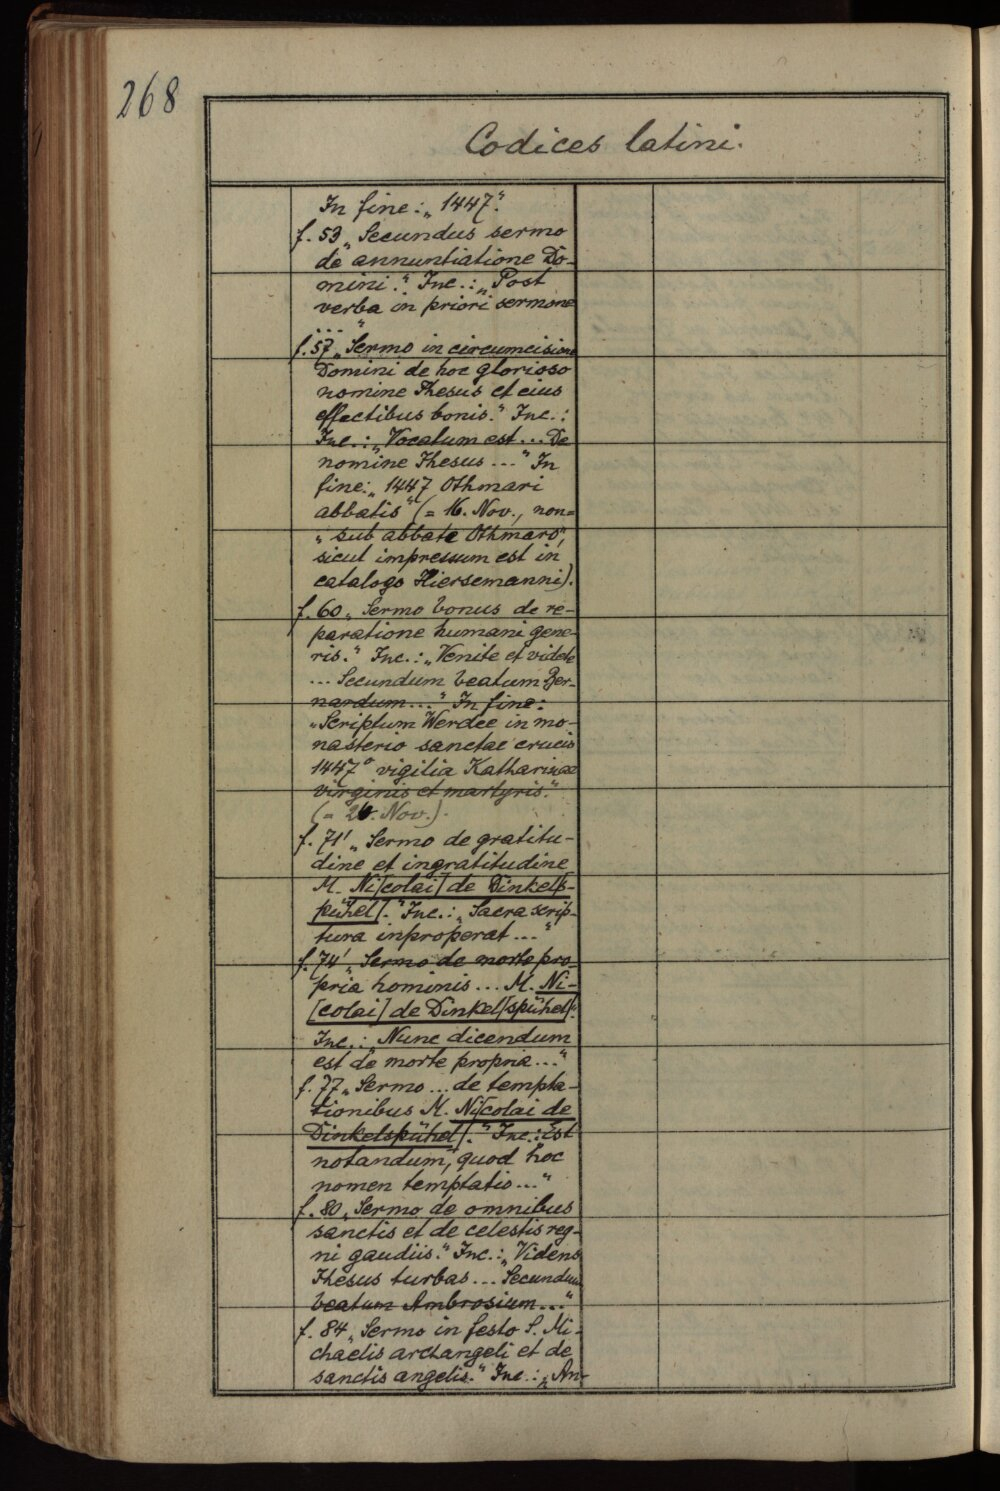 268
Codices latini.
In fine: „1447“.
f. 53 „Secundus sermo
de annuntiatione Do-
mini.“ Inc.: „Post
verba in priori sermone
...“
f. 57 „Sermo in circumcisione
Domini de hoc glorioso
nomine Ihesus et eius
effectibus bonis.“ Inc.:
Inc.: „Vocatum est... De
nomine Ihesus ...“ In
fine: „1447 Othmari
abbatis“ (= 16. Nov., non=
„sub abbate Othmaro“,
sicut impressum est in
catalogo Hiersemanni).
f. 60 „Sermo bonus de re-
paratione humani gene-
ris.“ Inc.: „Venite et videte
... Secundum beatum Ber-
nardum...“ In fine:
„Scriptum Werdee in mo-
nasterio sanctae crucis
1447° vigilia Katharinae
virginis et martyris.“
(= 26. Nov.).
f. 71' „Sermo de gratitu-
dine et ingratitudine
M. Ni[colai] de Dinkel[s-
pühel].“ Inc.: „Sacra scrip-
tura inproperat ...“
f. 74' „Sermo de morte pro-
pria hominis ... M. Ni-
[colai] de Dinkel[spühel].“
Inc.: „Nunc dicendum
est de morte propria ...“
f. 77 „Sermo ... de tempta-
tionibus M. Ni[colai de
Dinkelspühel].“ Inc.: „Est
notandum, quod hoc
nomen temptatio ...“
f. 80 „Sermo de omnibus
sanctis et de celestis reg-
ni gaudiis.“ Inc.: „Videns
Ihesus turbas ... Secundum
beatum Ambrosium ...“
f. 84 „Sermo in festo S. Mi-
chaelis archangeli et de
sanctis angelis.“ Inc.: „An-